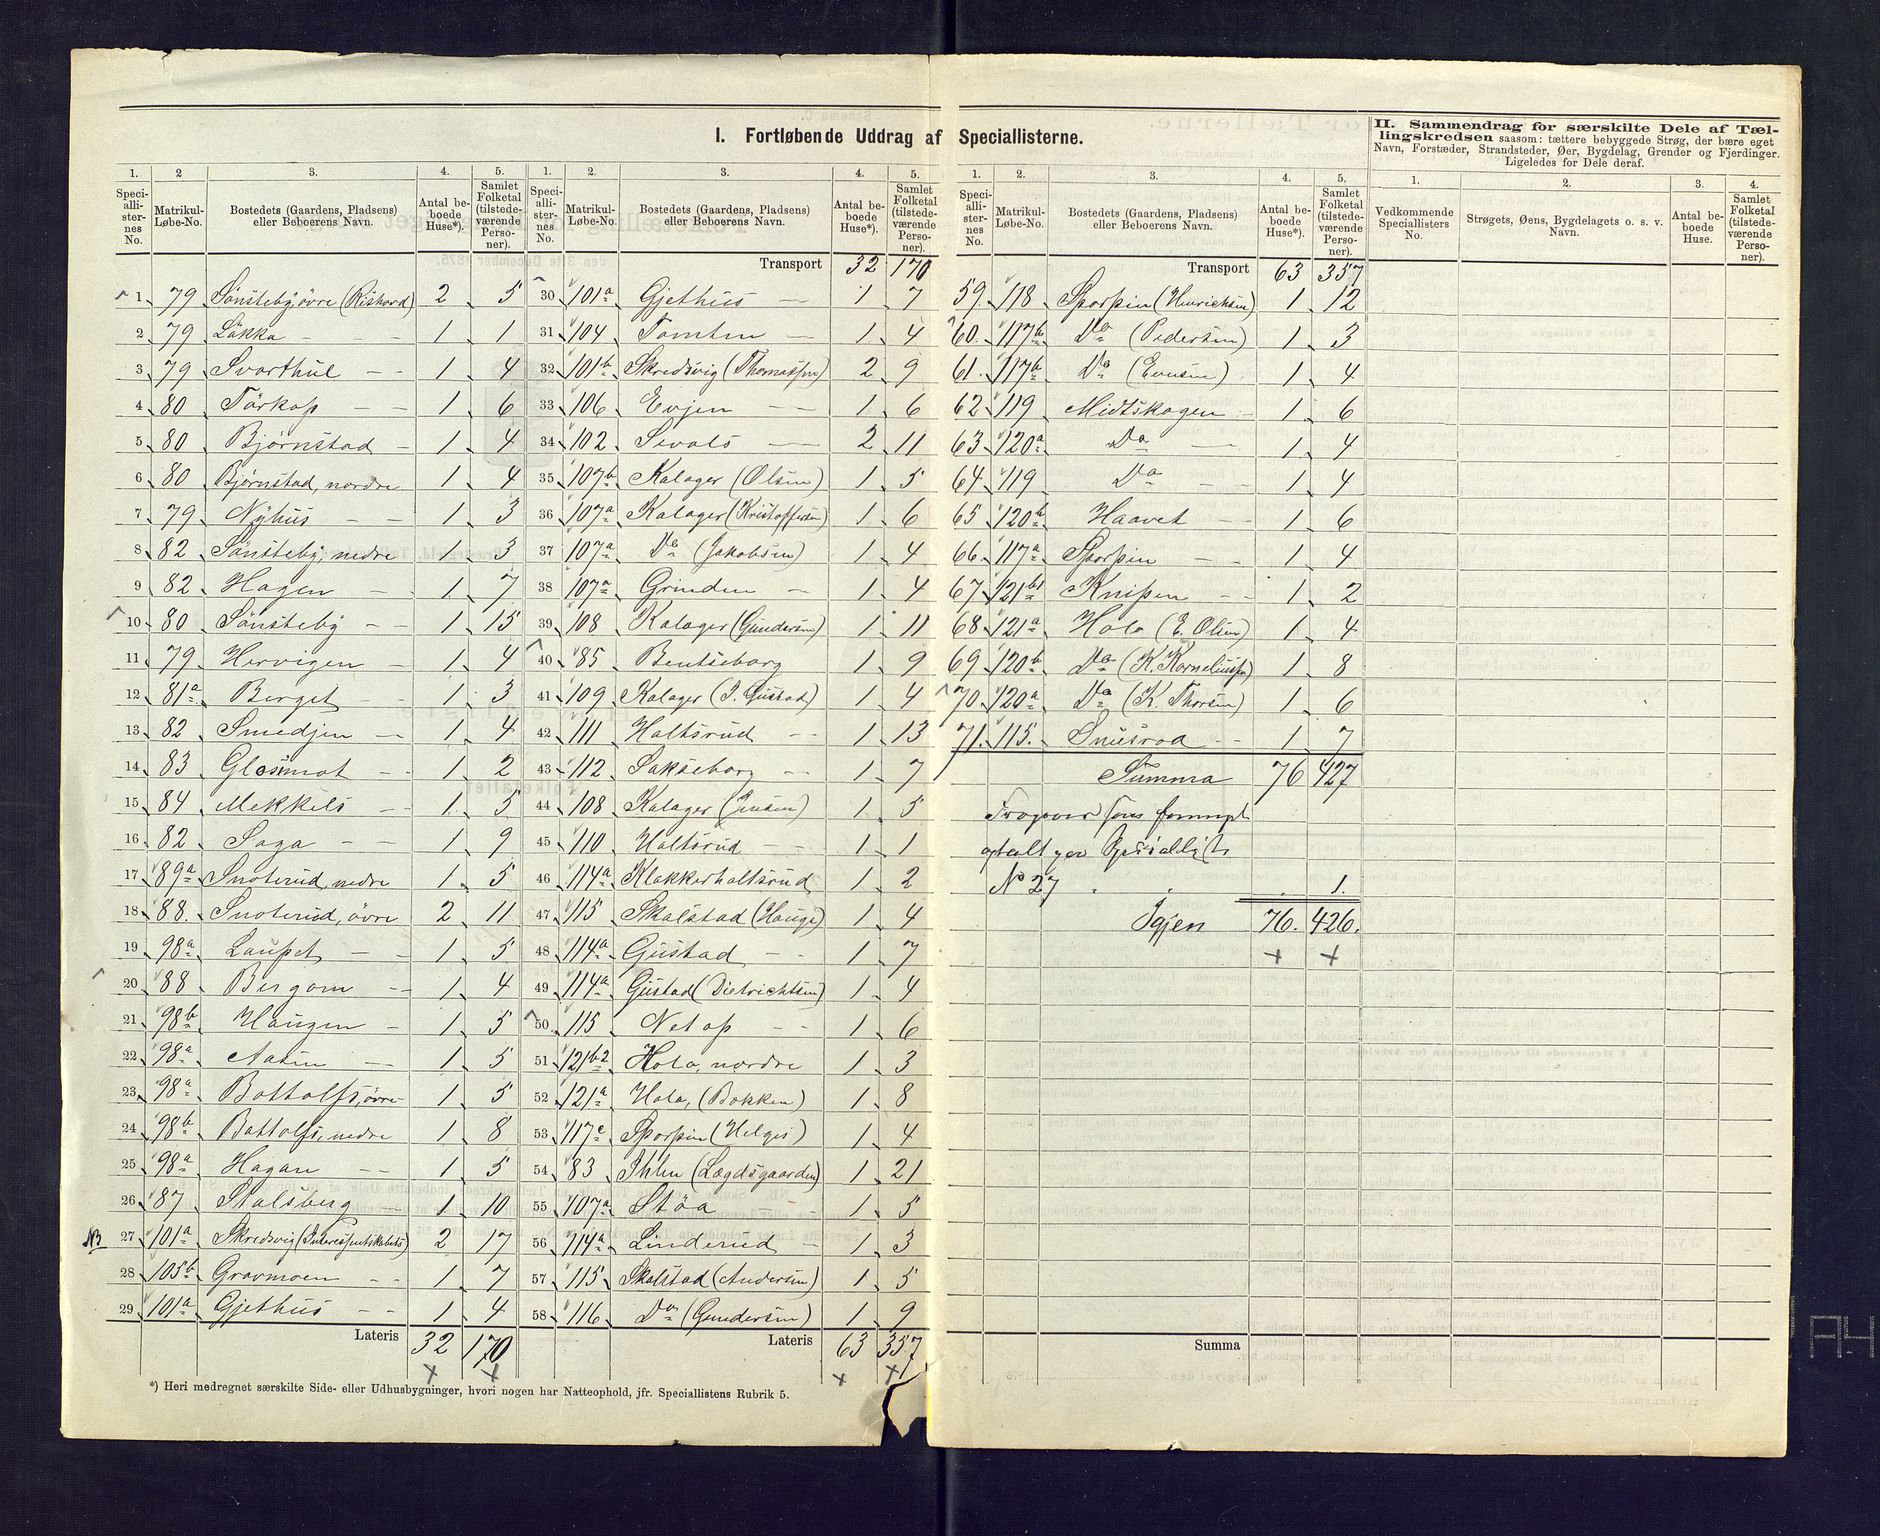 I. Fortløbende Uddrag af Speciallisterne.
1. 2 3. 4. 5.
Speci-alli-ster-nes No. Matrikul-Løbe-No. Bostedets (Gaardens, Pladsens) eller Beboerens Navn. Antal be-boede Huse*). Samlet Folketal (tilstede-værende Perso-ner).
1 79 Sönsteby, övre (Rishovd) 2 5
2 79 Løkka 1 1
3 79 Svarthul 1 4
4 80 Törkop 1 6
5 80 Bjørnstad 1 4
6 80 Bjørnstad, nordre 1 4
7 79 Nyhus 1 3
8 82 Sönsteby, nedre 1 3
9 82 Hagen 1 7
10 80 Sönsteby 1 15
11 79 Hervigen 1 4
12 81a Berget 1 3
13 82 Smedjen 1 4
14 83 Glosimot 1 2
15 84 Mekkels 1 5
16 82 Saga 1 9
17 89a Snoterud, nedre 1 5
18 88 Snoterud, övre 2 11
19 98a Laupet 1 5
20 88 Bergom 1 4
21 98b Haugen 1 5
22 98a Aasen 1 5
23 98a Bottolfs, övre 1 5
24 98b Bottolfs, nedre 1 8
25 98a Hagan 1 5
26 87 Stalsberg 1 10
NB 27 101a Skredsvig (Interessentskabets) 2 17
28 105b Gravmoen 1 7
29 101a Gjethus 1 4
Lateris 32 170
1. 2. 3. 4. 5.
Speci-alli-ster-nes No. Matrikul-Løbe-No. Bostedets (Gaardens, Pladsens) eller Beboerens Navn. Antal be-boede Huse*). Samlet Folketal (tilstede-værende Perso-ner).
Transport 32 170
30 101a Gjethus 1 7
31 104 Tomten 1 4
32 101b Skredsvig (Thomassen) 2 9
33 106 Evjen 1 6
34 102 Sevals 2 11
35 107b Kalager (Olsen) 1 5
36 107a Kalager (Kristoffersen) 1 6
37 107a Do (Jakobsen) 1 4
38 107a Grinden 1 4
39 108 Kalager (Gundersen) 1 11
40 85 Bentseborg 1 9
41 109 Kalager (J. Gustad) 1 4
42 111 Holtsrud 1 13
43 112 Sakseborg 1 7
44 108 Kalager (Jensen) 1 5
45 110 Holtsrud 1 1
46 114a Klokkerholtsrud 1 2
47 115 Skalstad (Hauge) 1 4
48 114a Gustad 1 7
49 114a Gustad (Dietrichsen) 1 4
50 115 Netop 1 6
51 121b2 Hola, nordre 1 3
52 121a Hola, (Bakken) 1 8
53 117c Sporpin (Helges) 1 4
54 83 Ihlen (Lægdsgaarden) 1 21
55 107a Stöa 1 5
56 114a Linderud 1 3
57 115 Skalstad (Andersen) 1 5
58 116 Do (Gundersen) 1 9
Lateris 63 357
*) Heri medregnet særskilte Side- eller Udhusbygninger, hvori nogen har Natteophold, jfr. Speciallistens Rubrik 5.
1. 2. 3. 4. 5.
Speci-alli-ster-nes No. Matrikul-Løbe-No. Bostedets (Gaardens, Pladsens) eller Beboerens Navn. Antal be-boede Huse*). Samlet Folketal (tilstede-værende Perso-ner).
Transport 63 357
59. 118 Sporpin (Henriksen) 1 12
60. 117b Do (Pedersen) 1 3
61. 117b Do (Evensen) 1 4
62 119 Midtskogen 1 6
63 120a Do 1 4
64 119 Do 1 4
65 120b Haavet 1 6
66 117a Sporpin 1 4
67 121b1 Knipen 1 2
68 121a Hola (E. Olsen) 1 4
69 120b Do (K. Korneliussen) 1 8
70. 120a Do (K. Thorsen) 1 6
71. 115. Snusrod 1 7
Summa 76 427
Fragaar som
optalt
No 27 1.
Igjen 76. 426.
Summa
II. Sammendrag for særskilte Dele af Tæl-
lingskredsen saasom: tættere bebyggede Strøg, der bære eget
Navn, Forstæder, Strandsteder, Øer, Bygdelag, Grender og Fjerdinger.
Ligeledes for Dele deraf.
1. 2. 3. 4.
Vedkommende Speciallisters No. Strøgets, Øens, Bygdelagets o. s. v. Navn. Antal be-boede Huse. Samlet Folketal (tilstede-værende Perso-ner).